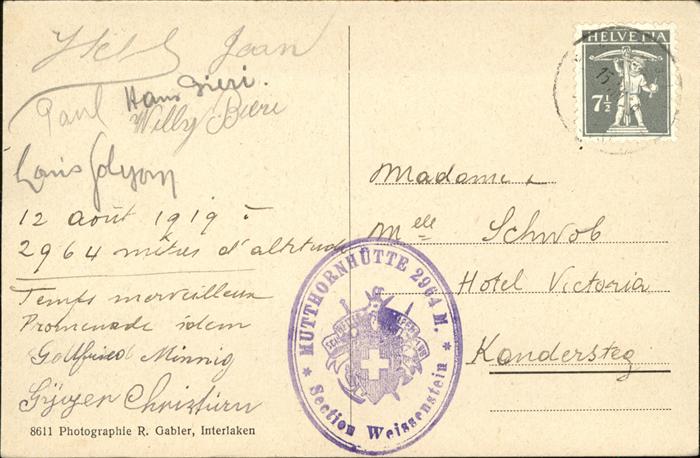 Jean
Paul Hans Bieri.
Willy Bieri
Louis
12 août 1919 à
2964 mètres d'altitude
Temps merveilleux
Promenade idem
Gottfried Minnig
Christian
8611 Photographie R. Gabler, Interlaken
HELVETIA
7½
Madame
Melle Schwob
Hotel Victoria
Kandersteg
* MUTTHORNHÜTTE 2964 M. *
Section Weissenstein